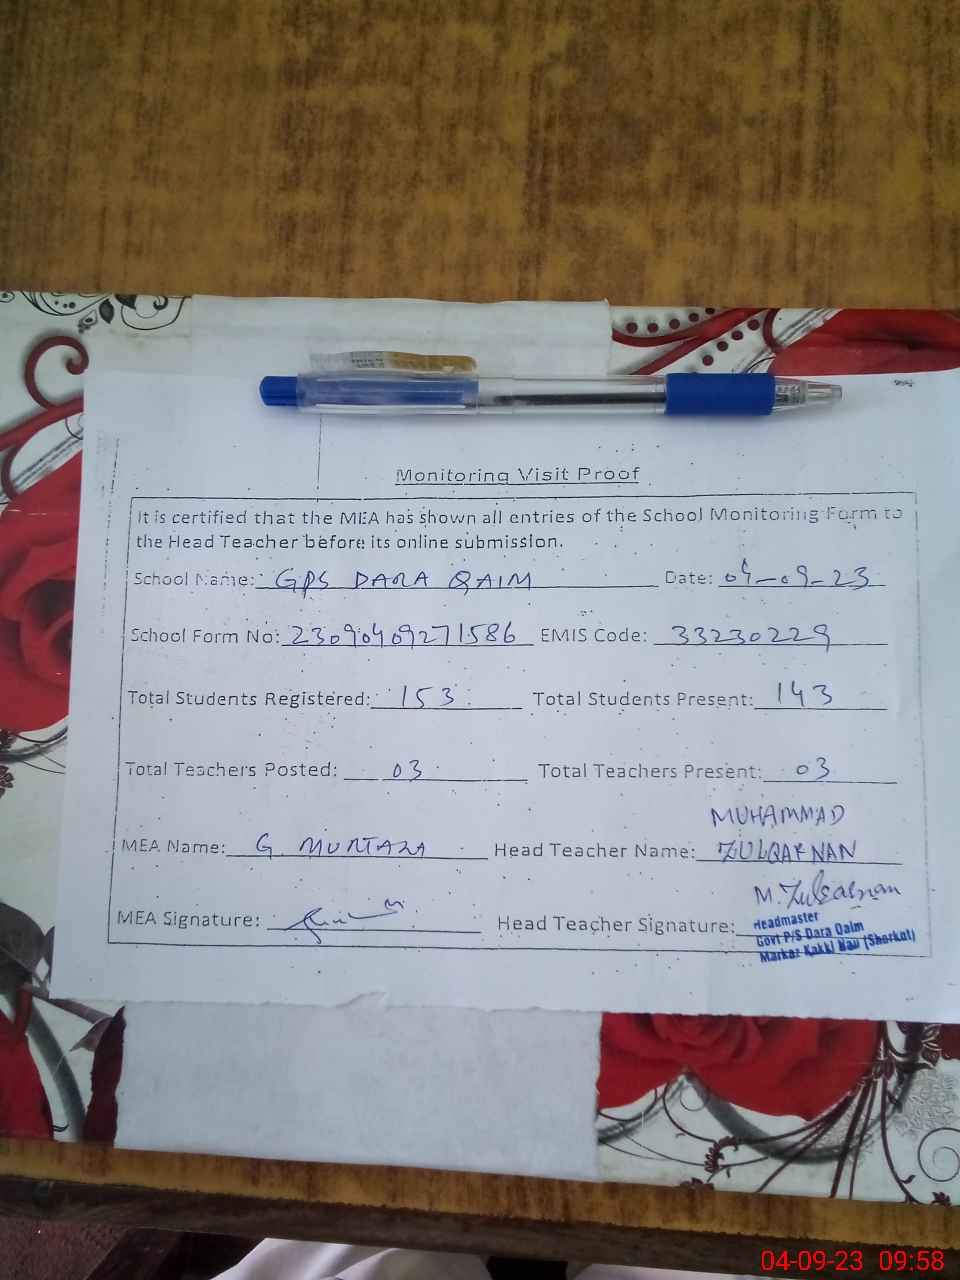 Monitoring Visit Proof
It is certified that the MEA has shown all entries of the School Monitoring Form to
the Head Teacher before its online submission.
School Name: GPS DARA QAIM Date: 04-09-23
School Form No: 23090409271586 EMIS Code: 33230229
Total Students Registered: 153 Total Students Present: 143
Total Teachers Posted: 03 Total Teachers Present: 03
MUHAMMAD
MEA Name: G. MURTAZA Head Teacher Name: ZULQARNAN
M. Zulqarnan
MEA Signature: Head Teacher Signature:
Headmaster
Govt P/S Dara Qaim
Markaz Kakki Nau (Shorkot)
04-09-23 09:58